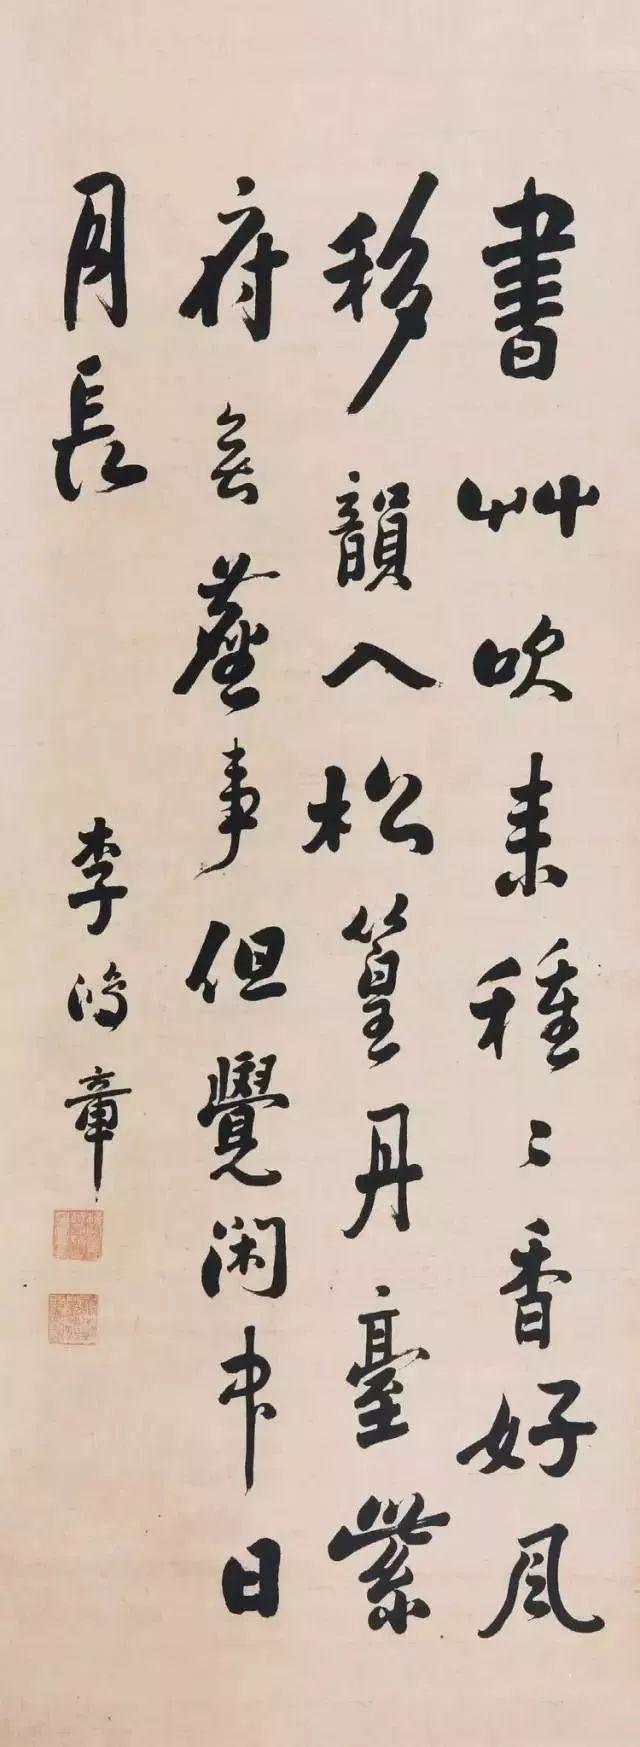 書艸吹来種〻香好風
移韻入松篁丹臺紫
府無塵事但覺閑中日
月長
李鴻章